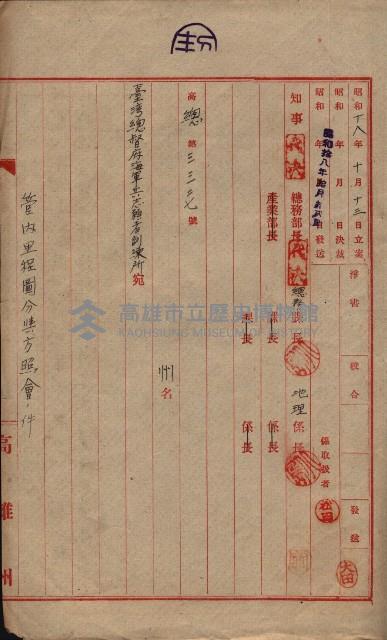 昭和十八年十月十三日立案
昭和 年 月 日決裁
昭和 年 月 日發送
淨書
校合
發送
係取扱者
知事
代決
總務部長
代決
總務課長
地理係長
產業部長
課長
係長
課長
係長
高總第三三二七號
州名
臺灣總督府海軍兵志願者訓練所宛
管內里程圖分與方照會ノ件
高雄州
高雄市立歷史博物館
KAOHSIUNG MUSEUM OF HISTORY